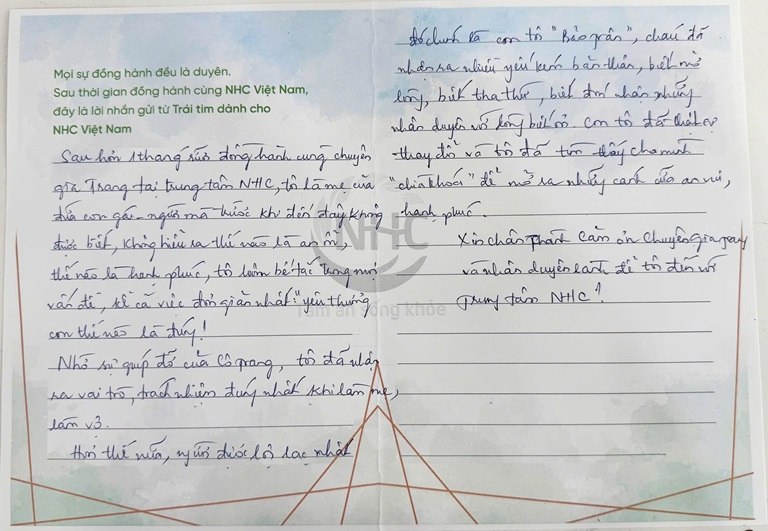 Mọi sự đồng hành đều là duyên.
Sau thời gian đồng hành cùng NHC Việt Nam,
đây là lời nhắn gửi từ Trái tim dành cho
NHC Việt Nam
Sau hơn 1 tháng rưỡi đồng hành cùng chuyên
gia Trang tại trung tâm NHC, tôi là mẹ của
đứa con gái - người mà trước khi đến đây không
được biết, không hiểu ra thế nào là an nhiên,
thế nào là hạnh phúc, tôi luôn bế tắc trong mọi
vấn đề, kể cả việc đơn giản nhất: "yêu thương
con thế nào là đúng!
Nhờ sự giúp đỡ của Cô Trang, tôi đã nhận
ra vai trò, trách nhiệm đúng nhất khi làm mẹ,
làm vợ.
Hơn thế nữa, người được lợi lạc nhất
Đó chính là con tôi "Bảo Trân", cháu đã
nhận ra nhiều yếu kém bản thân, biết mở
lòng, biết tha thứ, biết đón nhận những
nhân duyên với lòng biết ơn. Con tôi đã thật sự
thay đổi và tôi đã tìm thấy cho mình
"chìa khoá" để mở ra những cánh cửa an vui,
hạnh phúc.
Xin chân thành cảm ơn Chuyên gia Trang
và nhân duyên lành để tôi đến với
Trung tâm NHC!
NHC
Tâm an sống khỏe